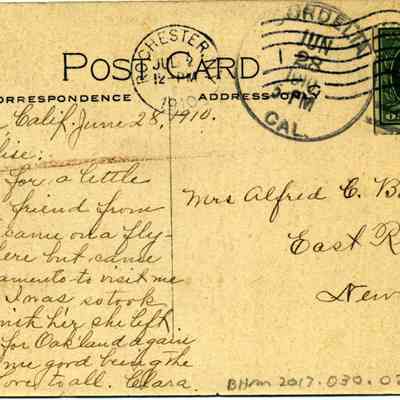 POST CARD
CORRESPONDENCE
ADDRESS ONLY
ROCHESTER,
JUL
12-PM
1910
JUN
28
5-PM
CAL.
Calif. June 28, 1910.
for a little
friend from
came on a fly-
here but came
to visit me
I was so took
with her she left
for Oakland again
me good being the
love to all. Clara.
Mrs Alfred E. B
East R
New
BHM 2017.030.02